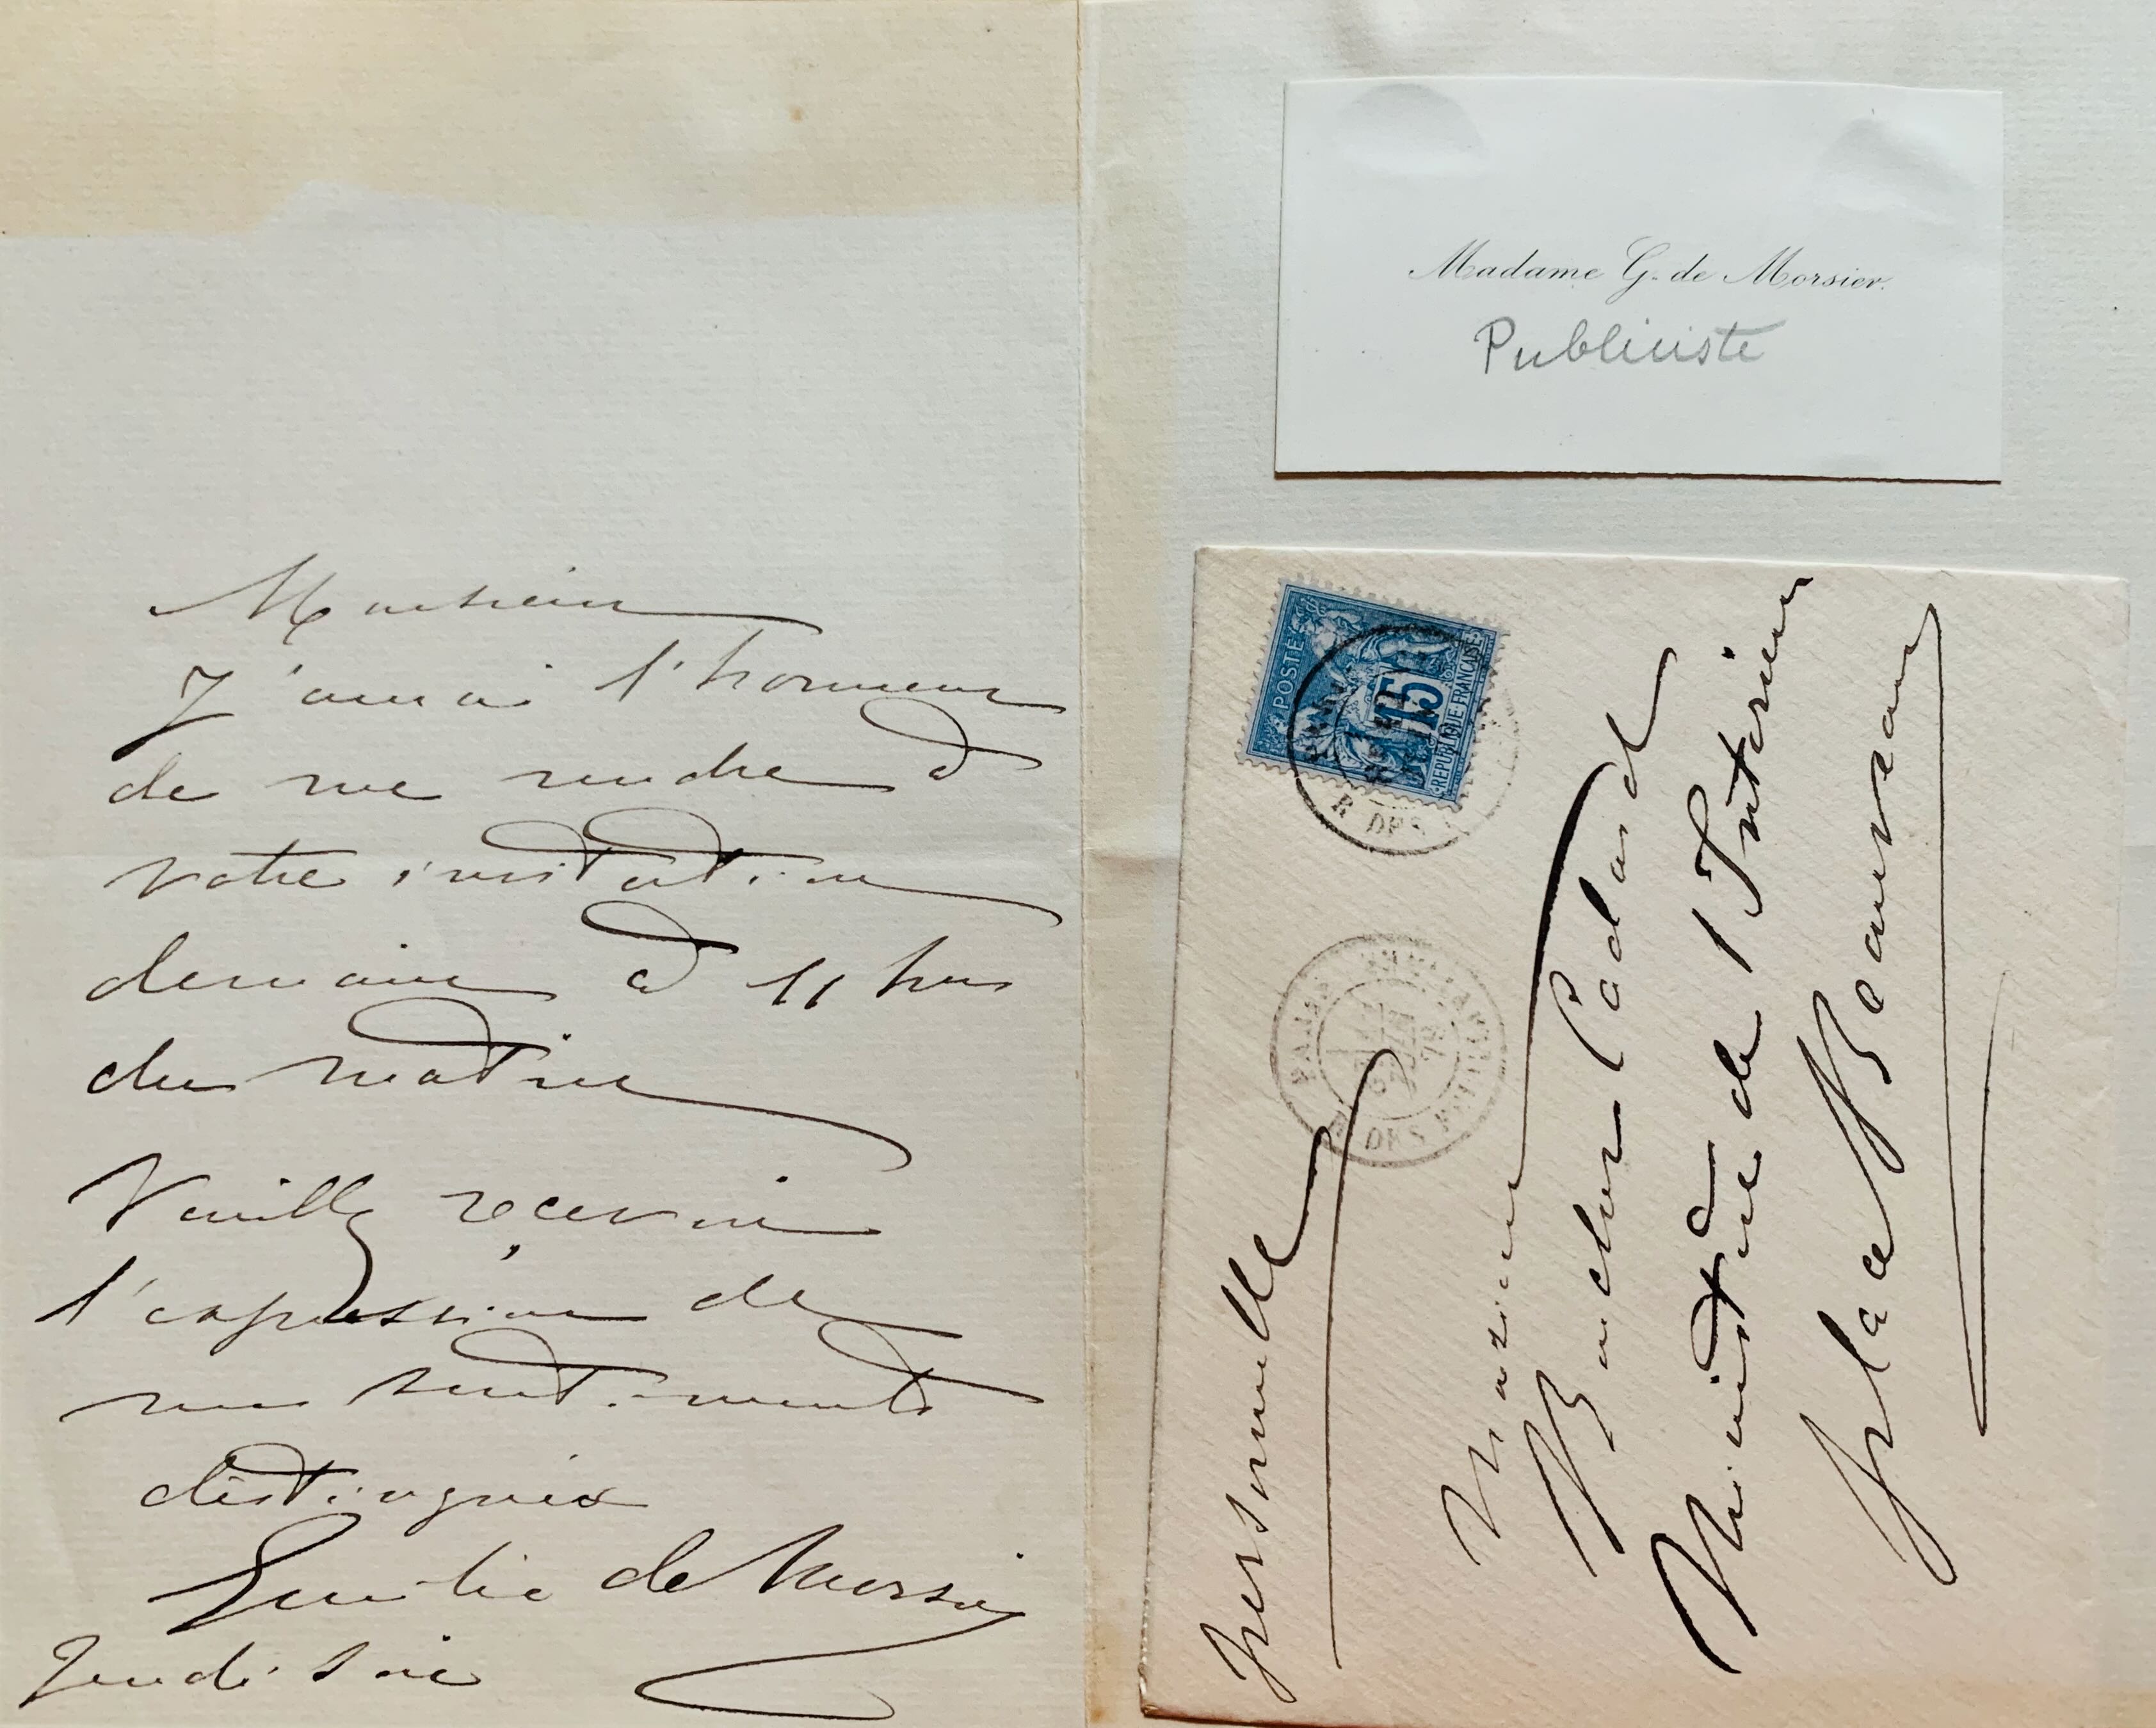 Monsieur
J'aurai l'honneur
de me rendre à
votre invitation
demain à 11 hres
du matin
Veuillez recevoir
l'expression de
mes sentiments
distingués
Emilie de Morsier
Jeudi soir
Madame G. de Morsier.
Publiciste
POSTES
15
REPUBLIQUE FRANÇAISE
R. DES
PARIS
R. DES
78
Personnelle
Monsieur
Ministère de l'Intérieur
place Beauveau